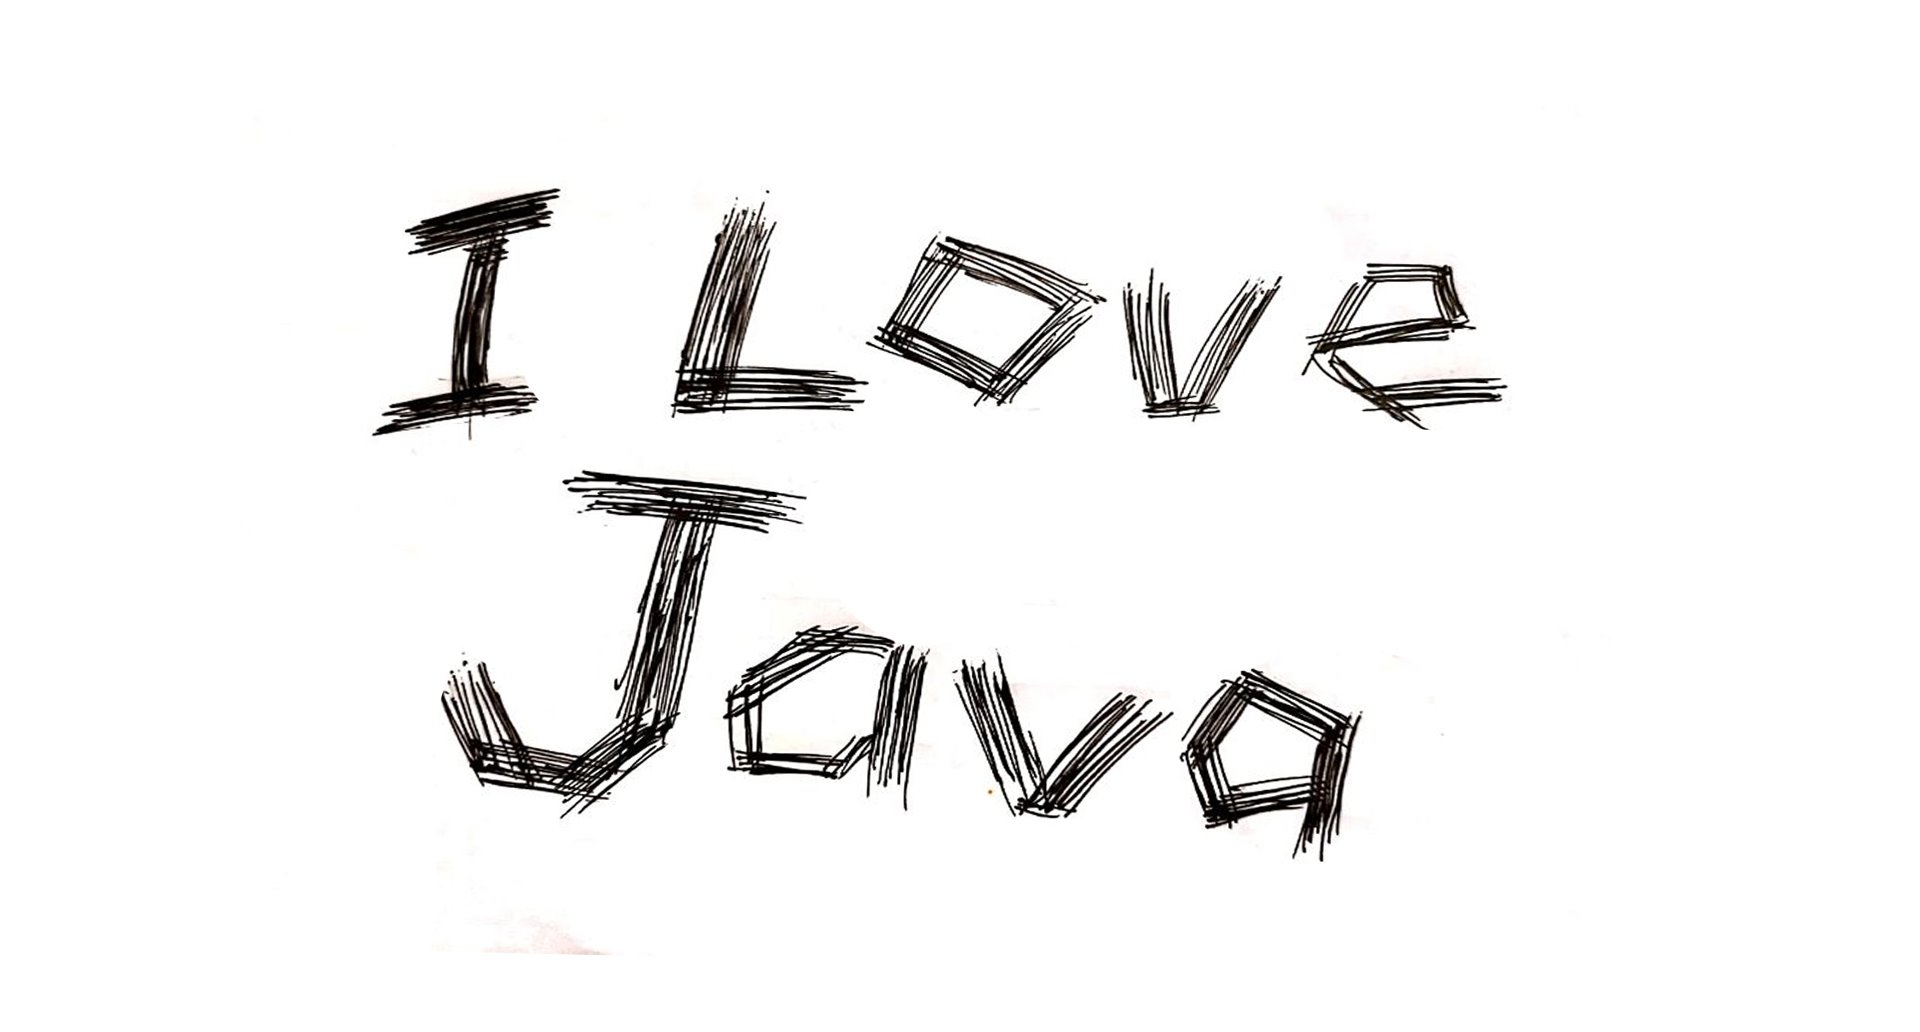 I Love
Java